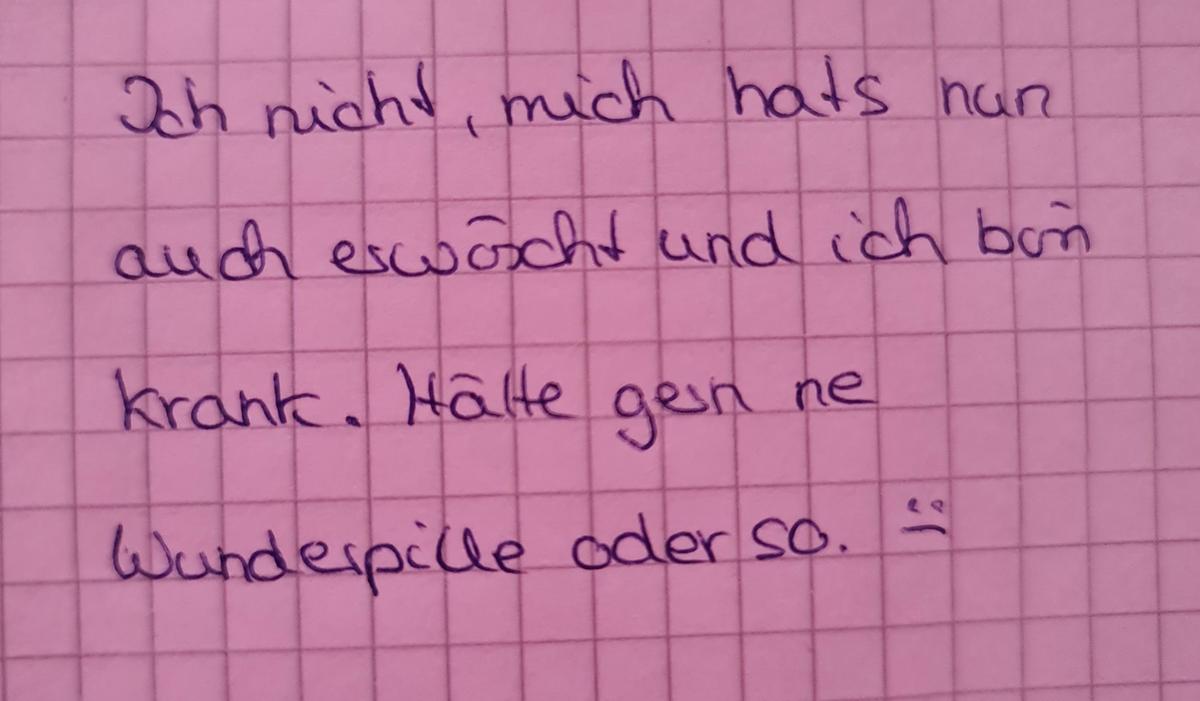 Ich nicht, mich hats nun
auch erwischt und ich bin
krank. Hätte gern ne
Wunderpille oder so. :|